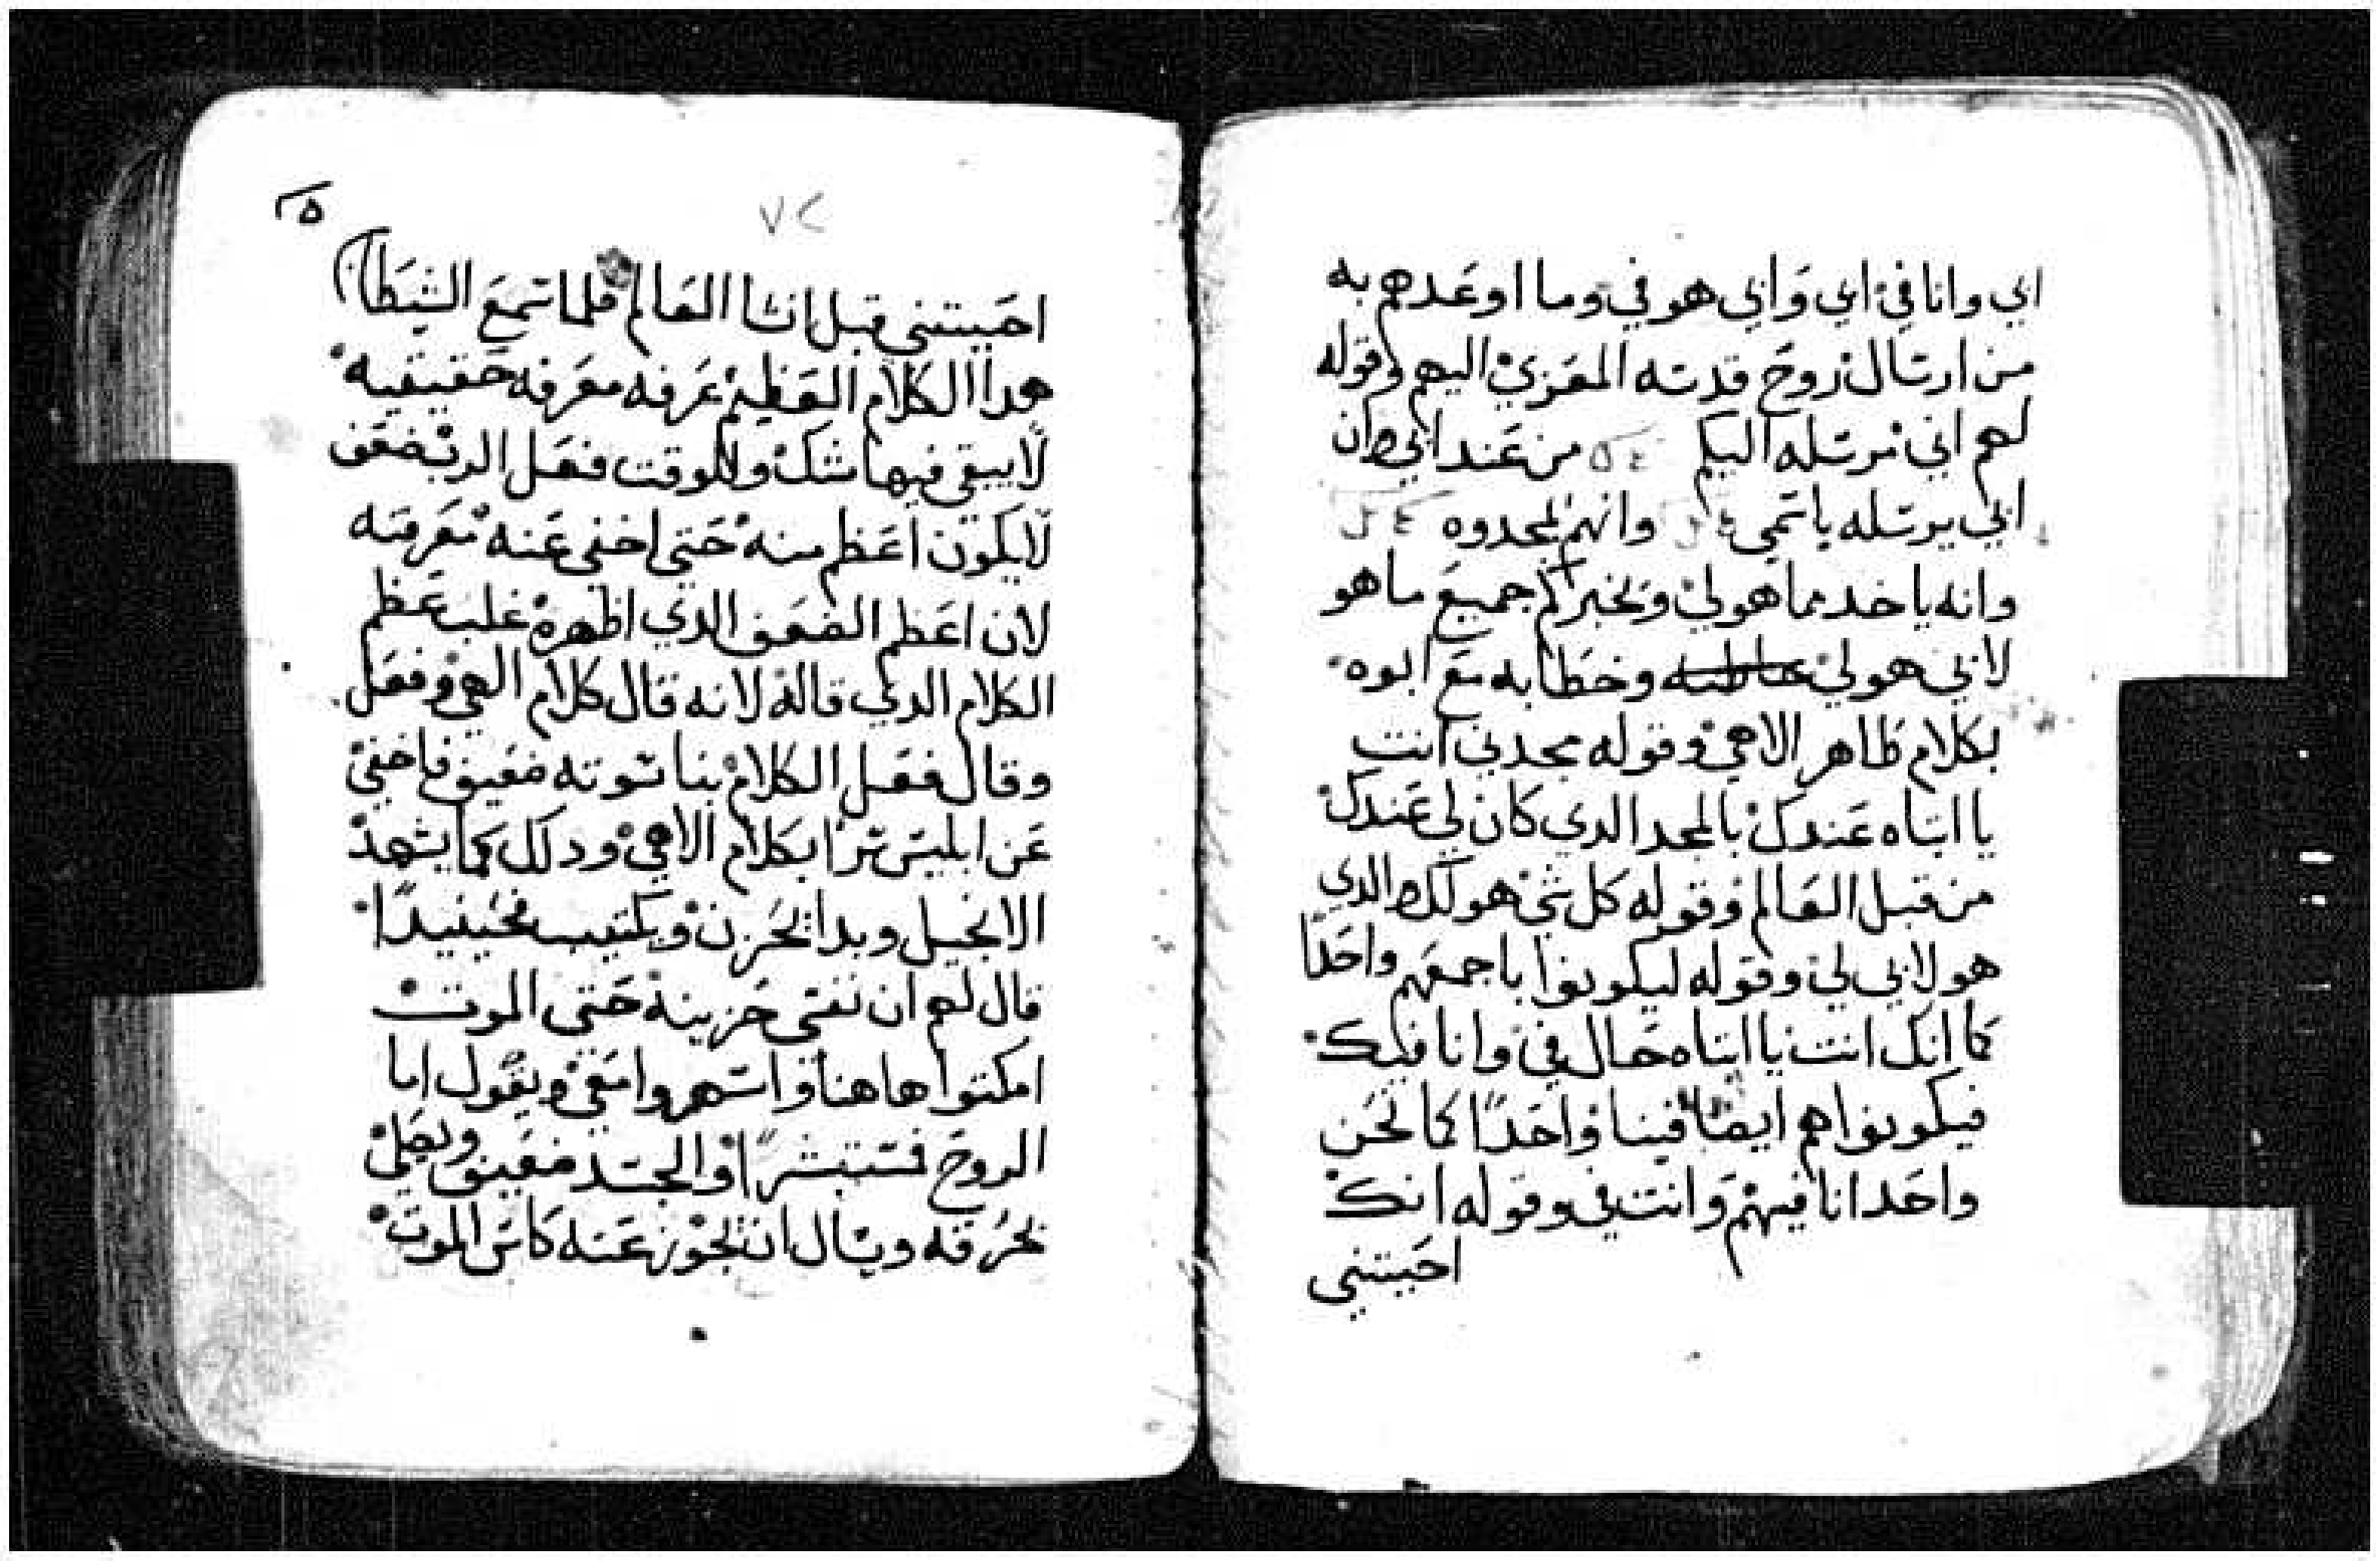 ابي وانا في ابي وابي هو في وما اوعدهم به
من ارسال روح قدسه المعزي اليهم وقوله
لهم اني مرسله اليكم من عند ابي وان
ابي يرسله باسمي وانهم لمجدوه
وانه ياخد مما هو لي ويخبركم جميع ما هو
لابي هو لي وخطابه مع ابوه
بكلام ظاهر الاهي وقوله مجدني انت
يا ابتاه عندك بالمجد الدي كان لي عندك
من قبل العالم وقوله كل شي هو لك والدي
هو لابي لي وقوله ليكونوا باجمعهم واحدًا
كما انك انت يا ابتاه حال في وانا فيك
فيكونوا هم ايضا فينا واحدًا كما نحن
واحد انا فيهم وانت في وقوله انك
احببتني
٧٢
احببتني قبل انشا العالم فلما سمع الشيطان
هدا الكلام العظيم عرفه معرفه حقيقيه
لا يبقى فيها شك وللوقت فعل الرب ضعف
لا يكون اعظم منه حتى اخفى عنه معرفته
لان اعظم الضعف الدي اظهره غلب عظم
الكلام الدي قاله لانه قال كلام الهي وفعل
وقال فعل الكلام بناسوته ضعيف فاخفي
عن ابليس سرًا بكلام الاهي ودلك كما يشهد
الانجيل وبدا يحزن ويكتيب فحينيدًا
قال لهم ان نفسي حزينة حتى الموت
امكتوا هاهنا واسهروا معي ويقول اما
الروح فستبشرًا والجسد ضعيف ويصلي
بحرقه ويسال ان تجوز عنه كاس الموت